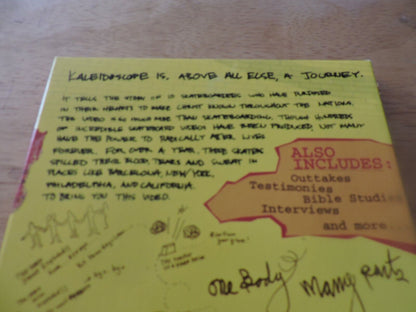 KALEIDOSCOPE IS, ABOVE ALL ELSE, A JOURNEY.
IT TELLS THE STORY OF 13 SKATEBOARDERS WHO HAVE PURPOSED
IN THEIR HEARTS TO MAKE CHRIST KNOWN THROUGHOUT THE NATIONS.
THE VIDEO IS MUCH MORE THAN SKATEBOARDING, THOUGH HUNDREDS
OF INCREDIBLE SKATEBOARD VIDEOS HAVE BEEN PRODUCED, NOT MANY
HAVE THE POWER TO RADICALLY ALTER LIVES
FOREVER. FOR OVER A YEAR, THESE SKATERS
SPILLED THEIR BLOOD, TEARS AND SWEAT IN
PLACES LIKE BARCELONA, NEW YORK,
PHILADELPHIA, AND CALIFORNIA
TO BRING YOU THIS VIDEO.
ALSO
INCLUDES:
Outtakes
Testimonies
Bible Studies
Interviews
and more...
one Body
Many parts